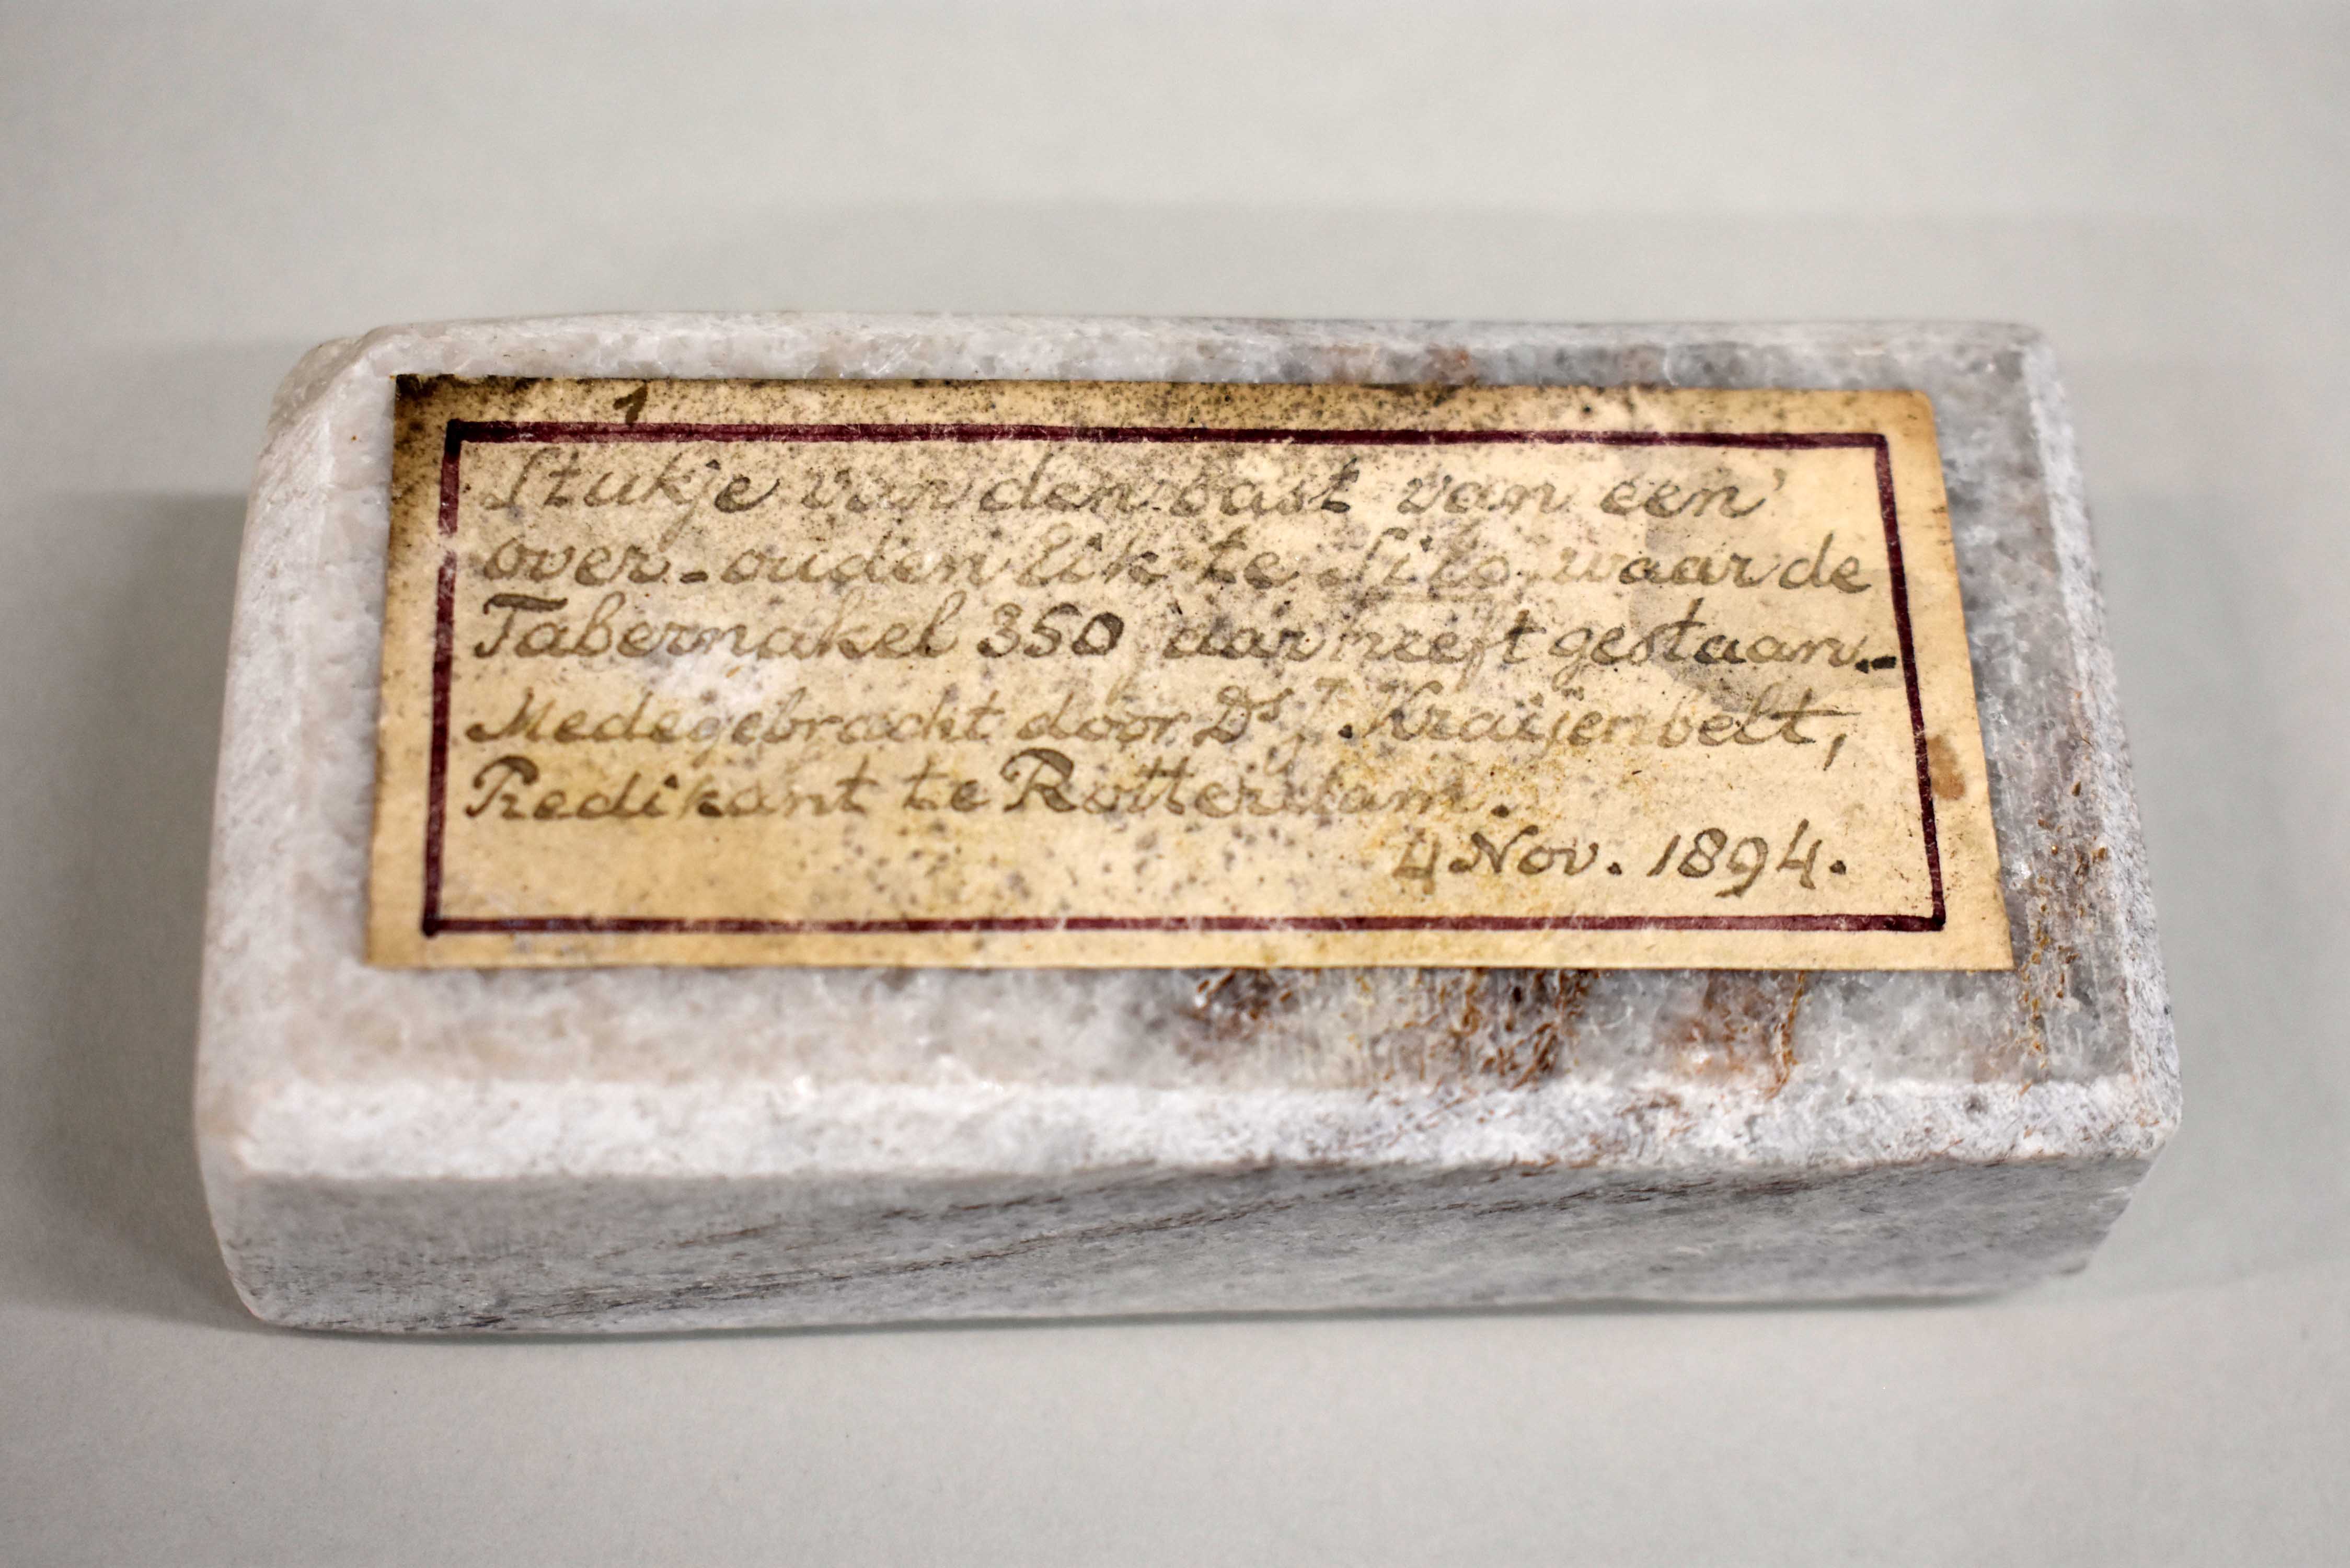 1
Stukje van den bast van een
over-ouden Eik te Silo, waar de
Tabernakel 350 jaar heeft gestaan.-
Medegebracht door Ds J. Kraijenbelt,
Predikant te Rotterdam.
4 Nov. 1894.